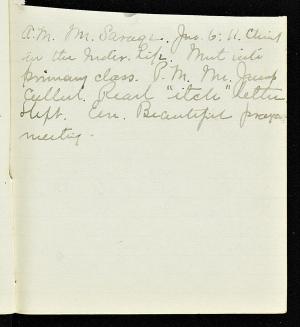 A.M. Mr. Savage. Jno. 6:11. Christ
in the Under. Life. Went into
primary class. P.M. Mr. Jump
called. Pearl "itch" letter
Slept. Eve. Beautiful prayer-
meeting.